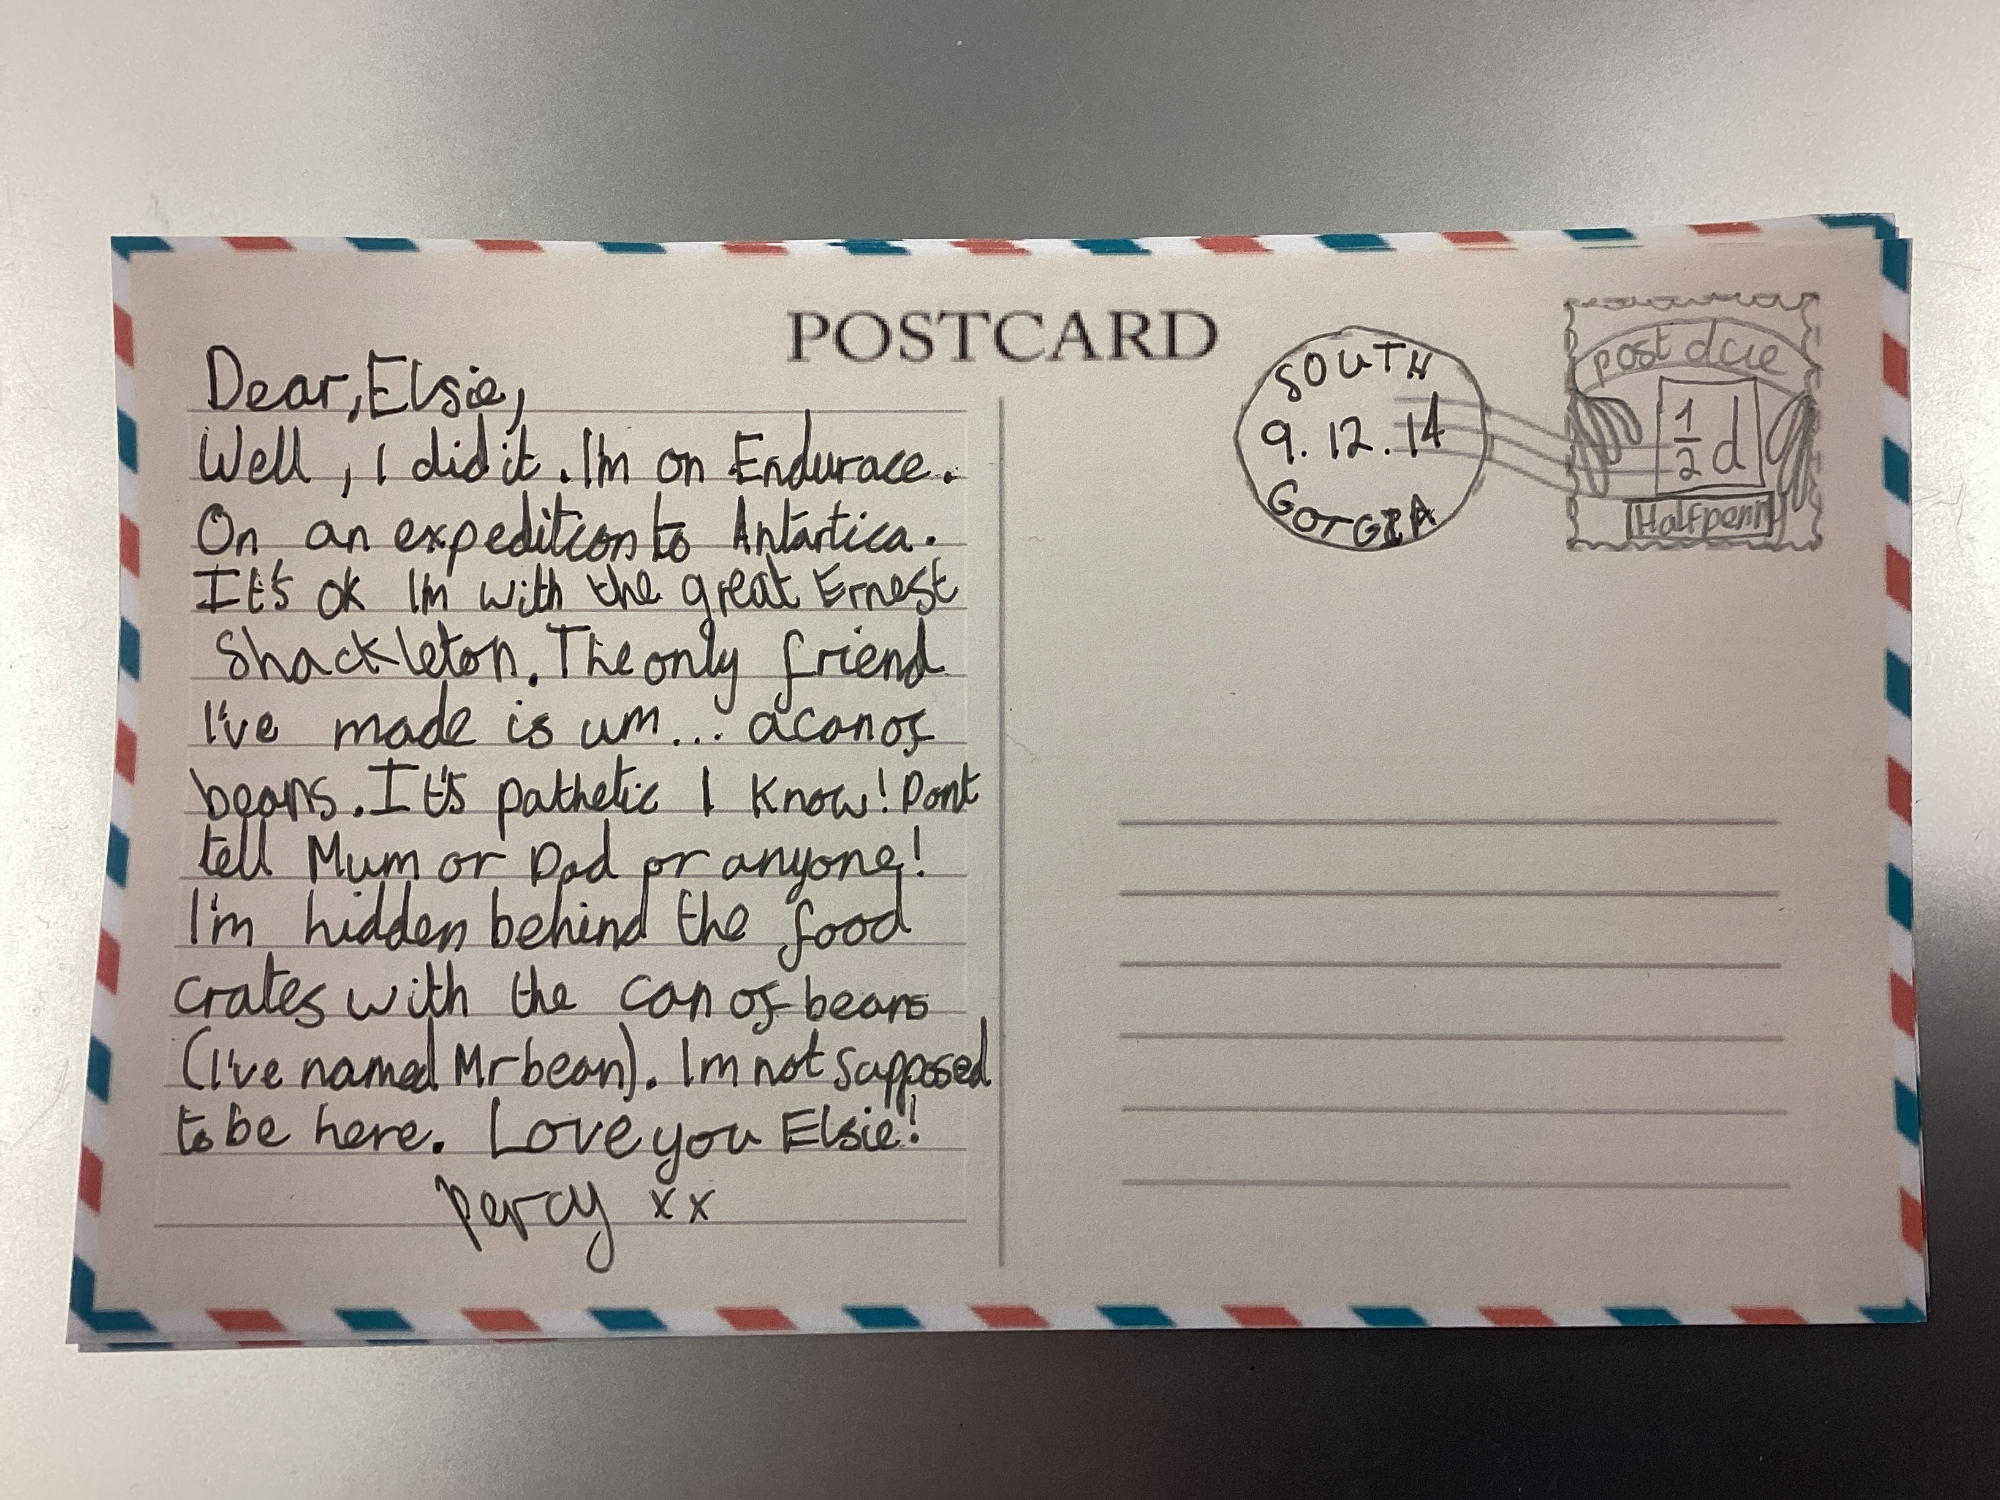 POSTCARD
Dear, Elsie,
Well, I did it. I'm on Endurace.
On an expedition to Antartica.
It's ok I'm with the great Ernest
Shackleton. The only friend
I've made is um... a can of
beans. It's pathetic I know! Dont
tell Mum or Dad or anyone!
I'm hidden behind the food
crates with the can of beans
(I've named Mr bean). I'm not supposed
to be here. Love you Elsie!
percy xx
SOUTH
9.12.14
GorGIA
post due
1/2 d
Halfpenny